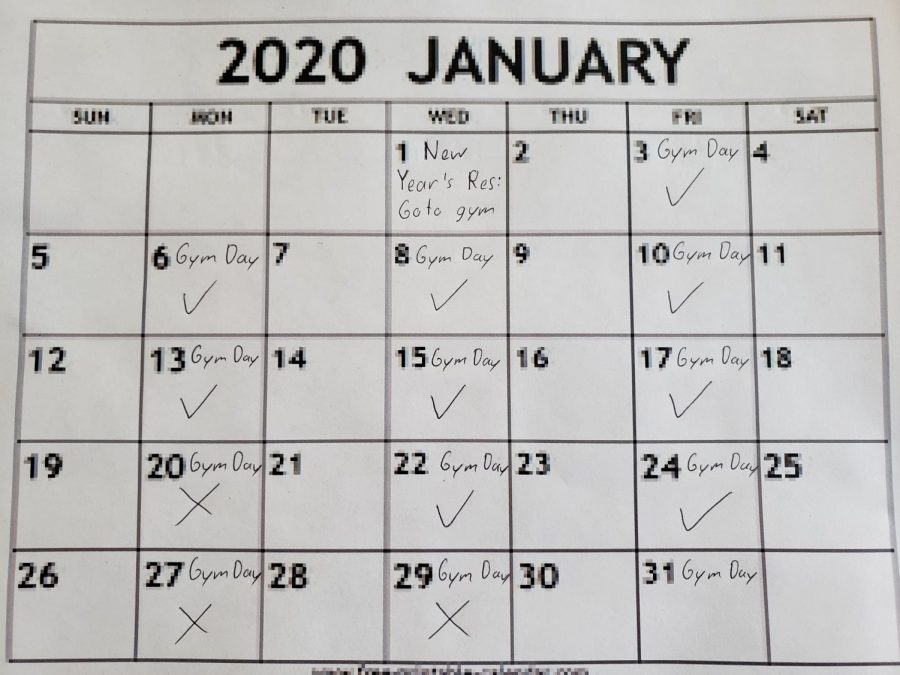 2020 JANUARY
SUN MON TUE WED THU FRI SAT
1 New
Year's Res:
Go to gym
2
3 Gym Day
4
5
6 Gym Day
7
8 Gym Day
9
10 Gym Day
11
12
13 Gym Day
14
15 Gym Day
16
17 Gym Day
18
19
20 Gym Day
21
22 Gym Day
23
24 Gym Day
25
26
27 Gym Day
28
29 Gym Day
30
31 Gym Day